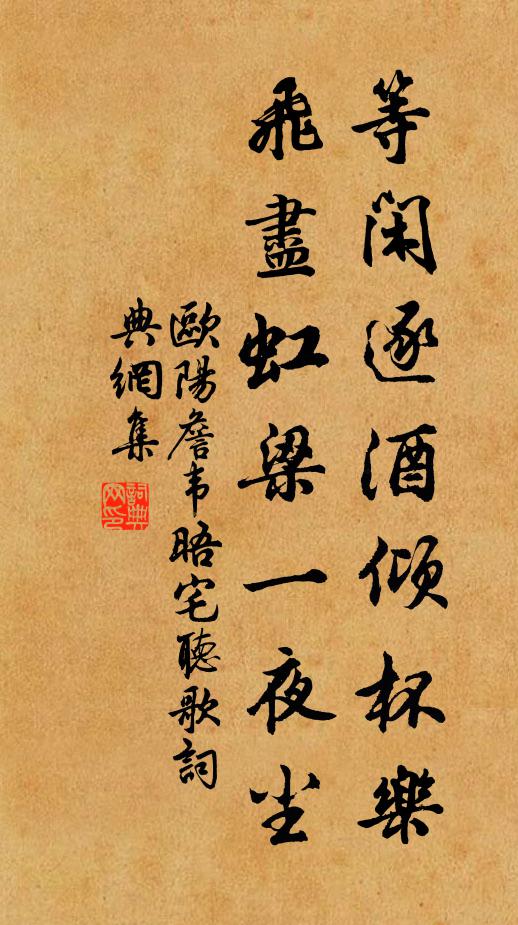 等闲逐酒倾杯樂
飛盡虹梁一夜尘
歐陽詹韦晤宅聽歌詞
典網集
詞典